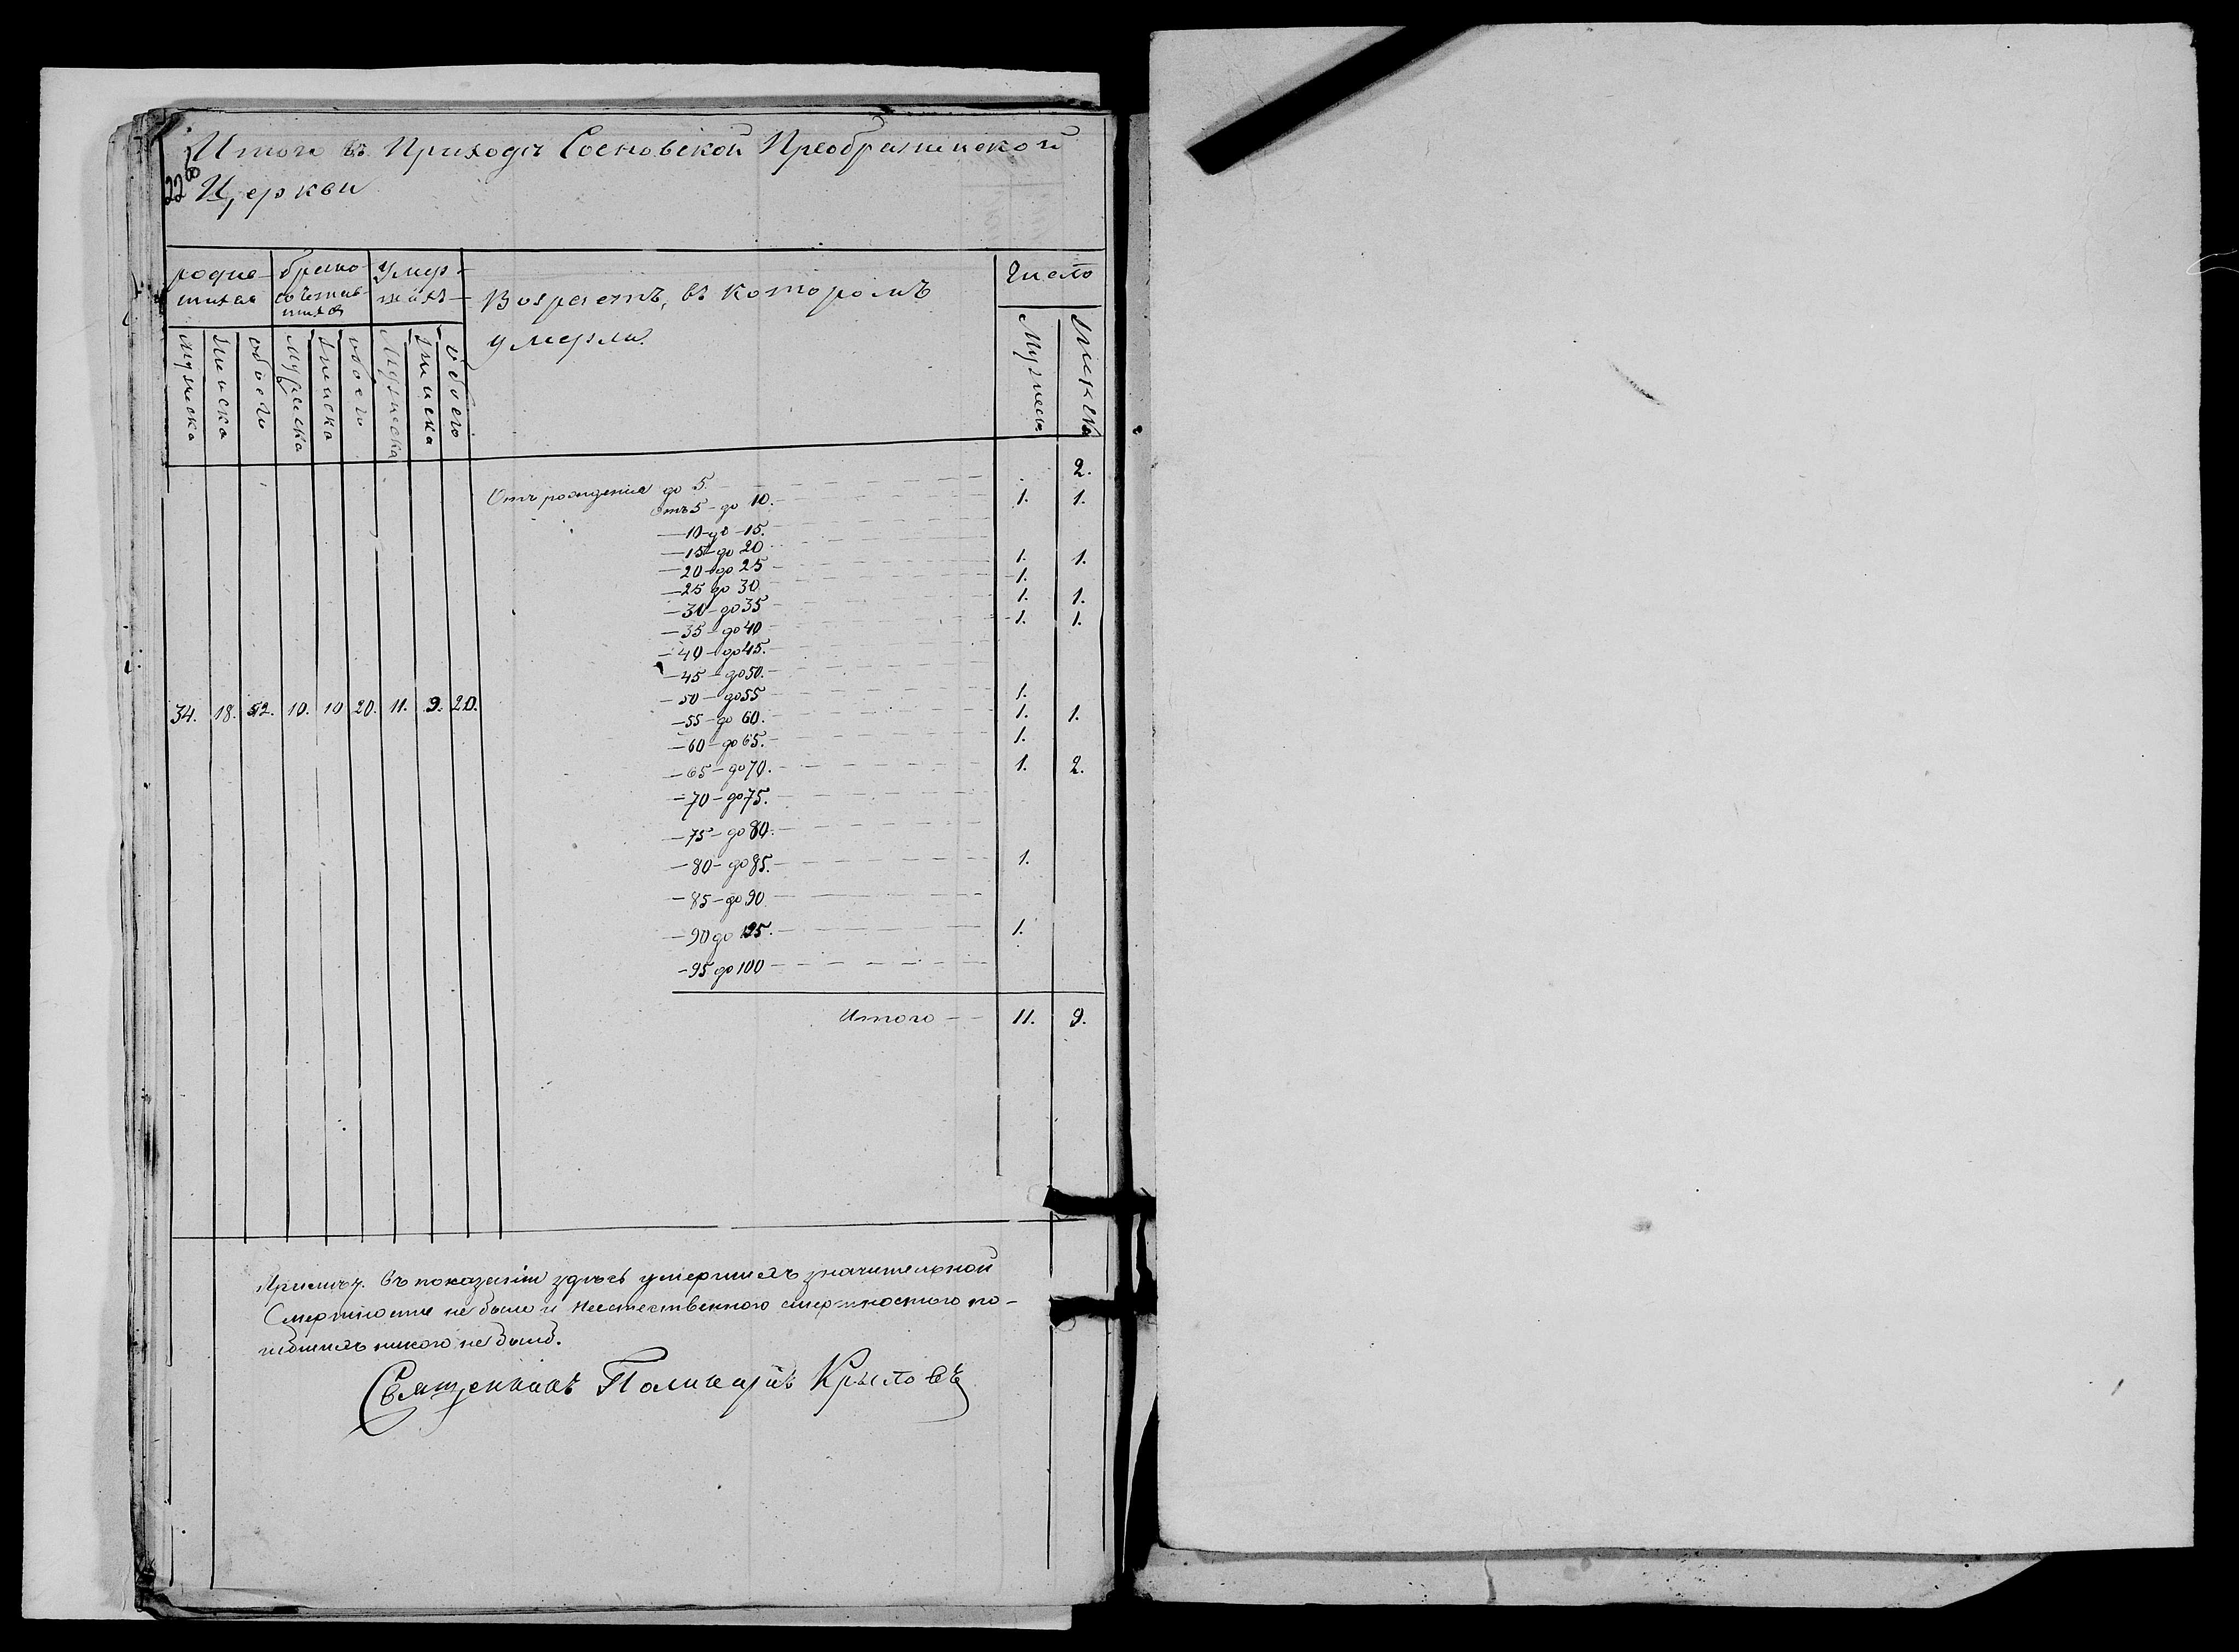 Итого въ Приходѣ Сосновской Преображенской
22об Церкви
родив- брако- Умер- Число
шихся сочетав- шихъ Возрастъ, въ которомъ
шихся умерли.
мужеска женска обоего мужеска женска обоего мужеска женска обоего Мужеска женска
Отъ рожденія до 5. 2.
Отъ 5 - до 10. 1. 1.
— 10 - до - 15.
— 15 - до 20
— 20 - до 25 1. 1.
— 25 до 30 1.
— 30 - до 35 1. 1.
— 35 - до 40 1. 1.
— 40 - до 45.
— 45 - до 50.
— 50 - до 55 1.
34. 18. 52. 10. 10 20. 11. 9. 20. — 55 - до 60. 1. 1.
— 60 - до 65. 1.
— 65 - до 70. 1. 2.
— 70 - до 75.
— 75 - до 80.
— 80 - до 85. 1.
— 85 - до 90
— 90 до 95. 1.
— 95 до 100
Итого 11. 9.
Примѣч. въ показаніи здѣсь умершихъ значительной
Смертности не было и неестественною смертностію по-
гибшихъ никого не было.
Священникъ Поликарпъ Крыловъ